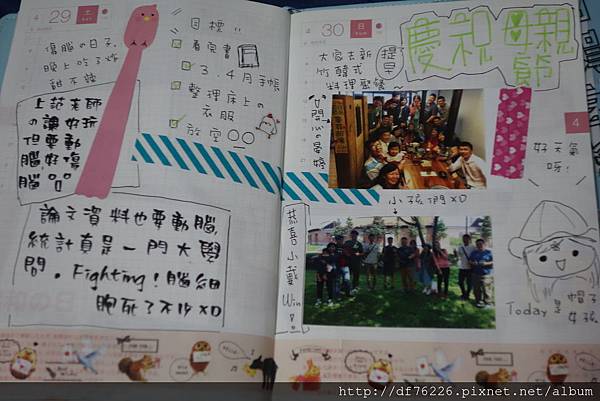 4 29 土
傷腦の日子,
晚上吃了炸
甜不辣
目標
看完書
3、4月手帳
整理床上の
衣服
放空○○
上范老師
の課好玩
但要動
腦好傷
腦
論文資料也要動腦,
統計真是一門大學
問。Fighting!腦細
胞死了不少XD
4 30 日
大家去新
竹韓式
料理聚餐~
提早
慶祝母親節
開心の晏婷
小孩們XD
恭喜小戴Win!!
4
好天氣
呀!
Today是帽子
女孩
http://df76226.pixnet.net/album